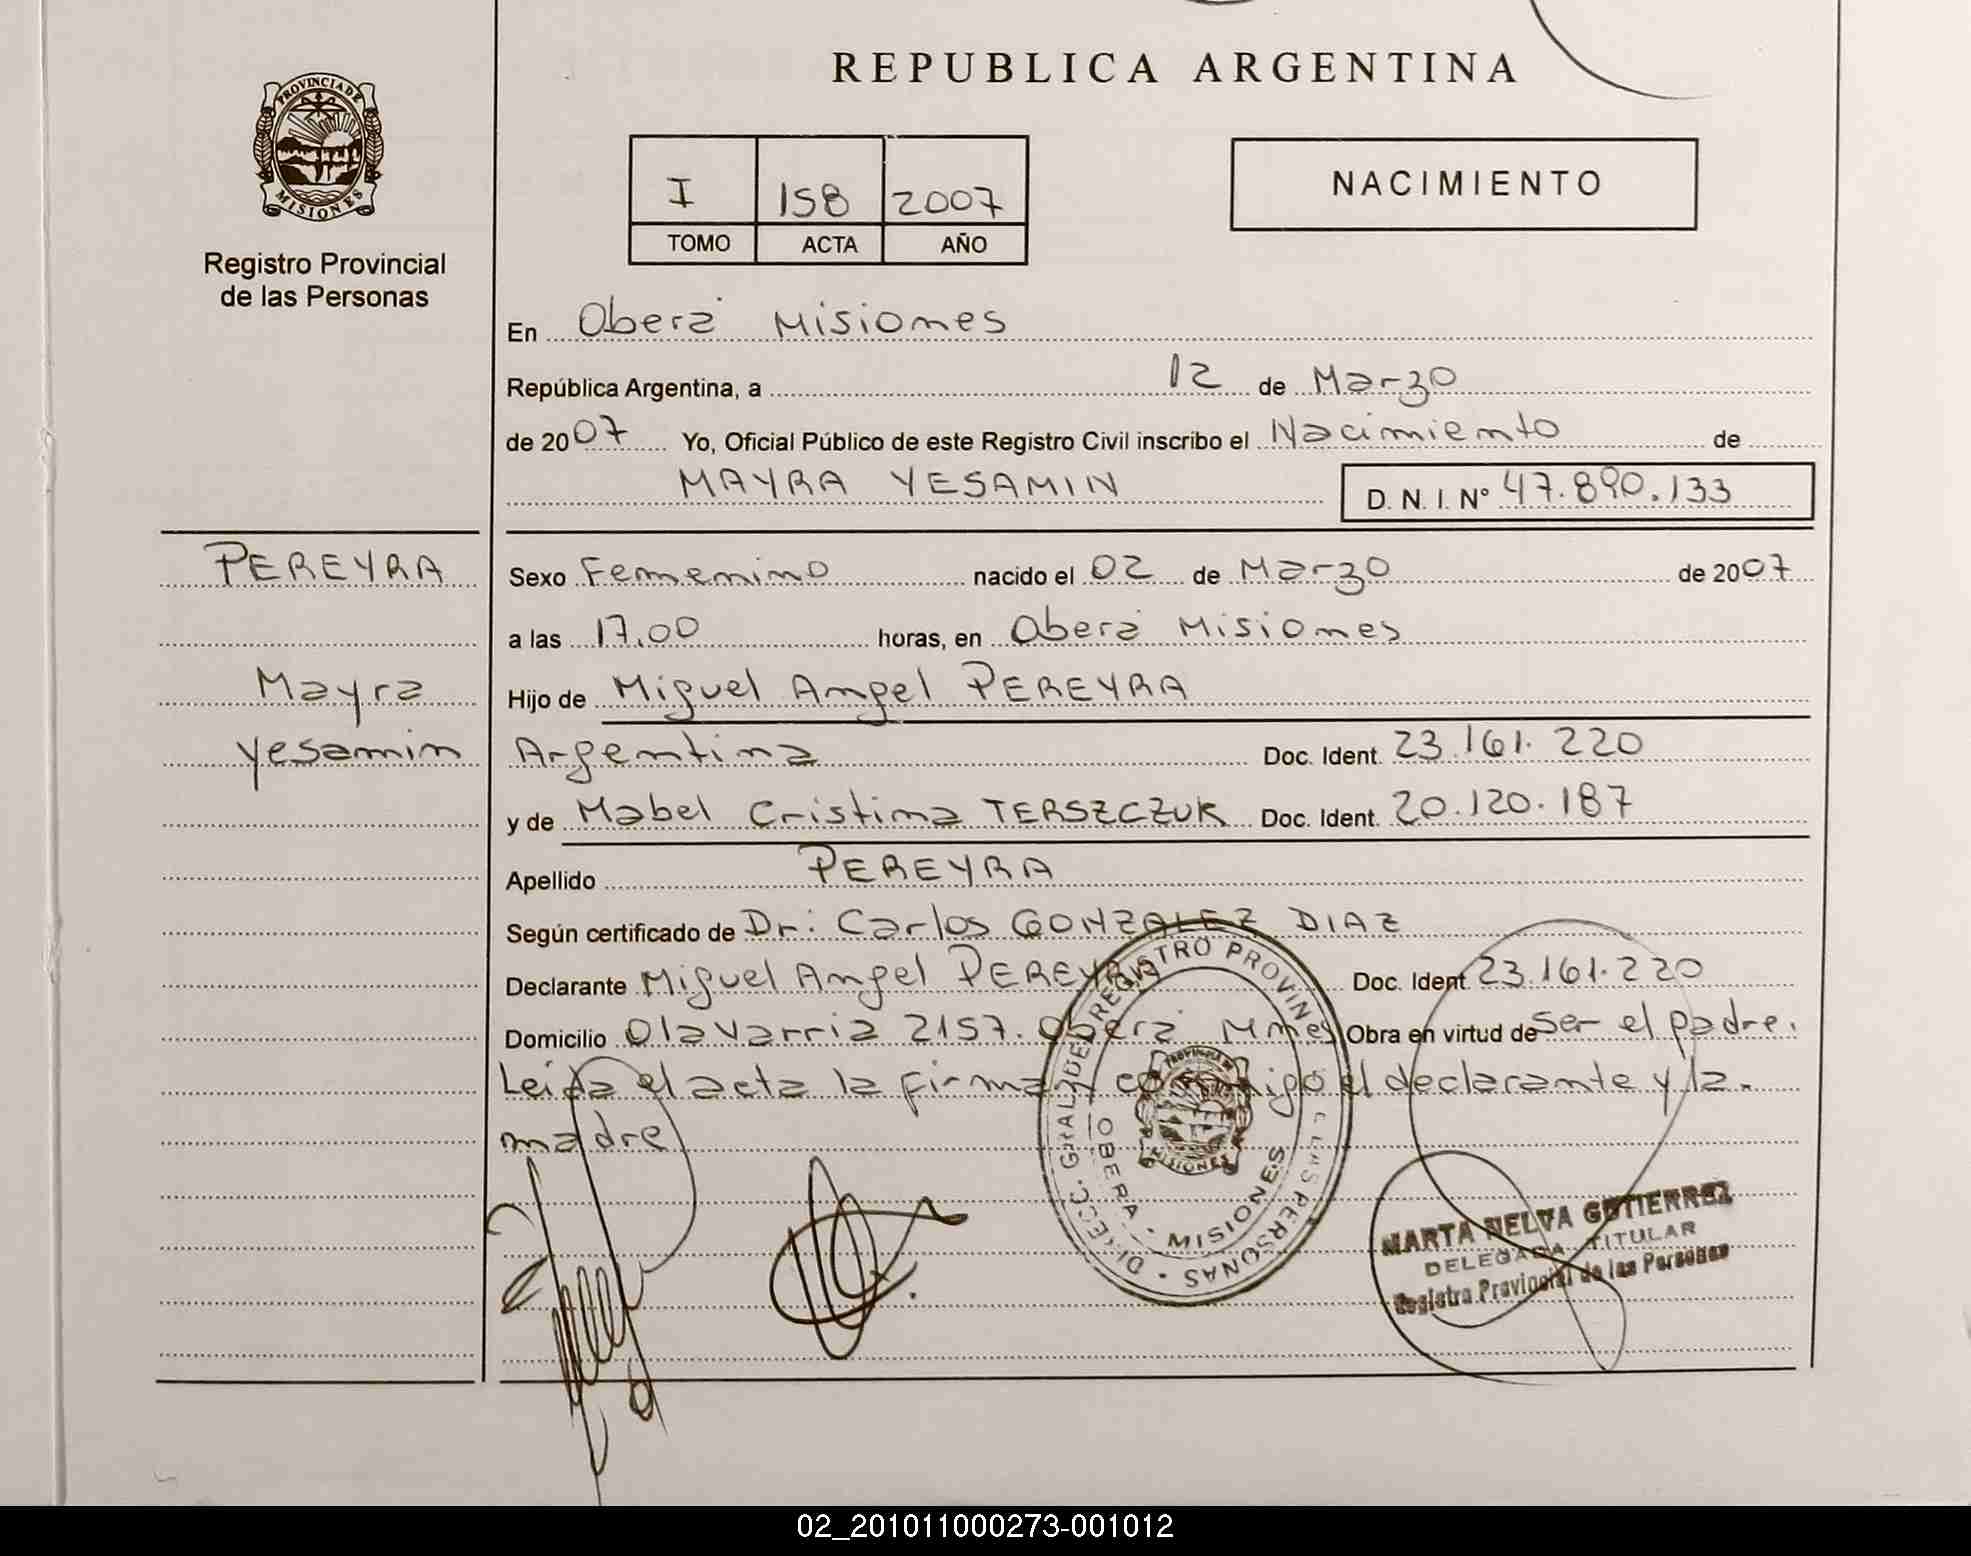 REPUBLICA ARGENTINA
PROVINCIA DE
MISIONES
Registro Provincial
de las Personas
I 158 2007
TOMO ACTA AÑO
NACIMIENTO
En Oberá Misiones
República Argentina, a 12 de Marzo
de 2007 Yo, Oficial Público de este Registro Civil inscribo el Nacimiento de
MAYRA YESAMIN D. N. I. N° 47.890.133
PEREYRA
Mayra
Yesamin
Sexo Femenino nacido el 02 de Marzo de 2007
a las 17.00 horas, en Oberá Misiones
Hijo de Miguel Angel PEREYRA
Argentina Doc. Ident. 23.161.220
y de Mabel Cristina TERSZCZUK Doc. Ident. 20.120.187
Apellido PEREYRA
Según certificado de Dr: Carlos GONZALEZ DIAZ
Declarante Miguel Angel PEREYRA Doc. Ident. 23.161.220
Domicilio Olavarria 2157. Oberá Mnes Obra en virtud de ser el padre.
Leida el acta la firma conmigo el declarante y la
madre
DIRECC. GRAL. DEL REGISTRO PROVINCIAL DE LAS PERSONAS
OBERA - MISIONES
PROVINCIA DE
MISIONES
MARTA NELVA GUTIERREZ
DELEGADA TITULAR
Registro Provincial de las Personas
02_201011000273-001012